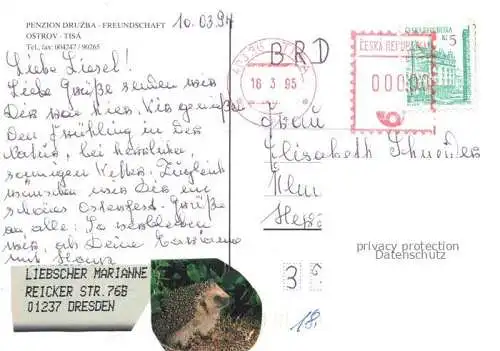 PENZION DRUŽBA - FREUNDSCHAFT
OSTROV - TISÁ
Tel., fax: 004247 / 90265
10.03.94
Liebe Liesel!
Liebe Grüße senden wir
Dir von hier. Wir genießen
Den Frühling in der
Natur, bei herrlichem
sonnigen Wetter. Zugleich
wünschen wir Dir ein
schönes Osterfest. Grüße
an alle. So verbleiben
wir, als Deine
mit Hans
BRD
18 3 95
ČESKÁ REPUBLIKA
0000
ČESKÁ REPUBLIKA
Kč 5
Frau
Elisabeth
privacy protection
Datenschutz
3
18,
LIEBSCHER MARIANNE
REICKER STR.76B
01237 DRESDEN